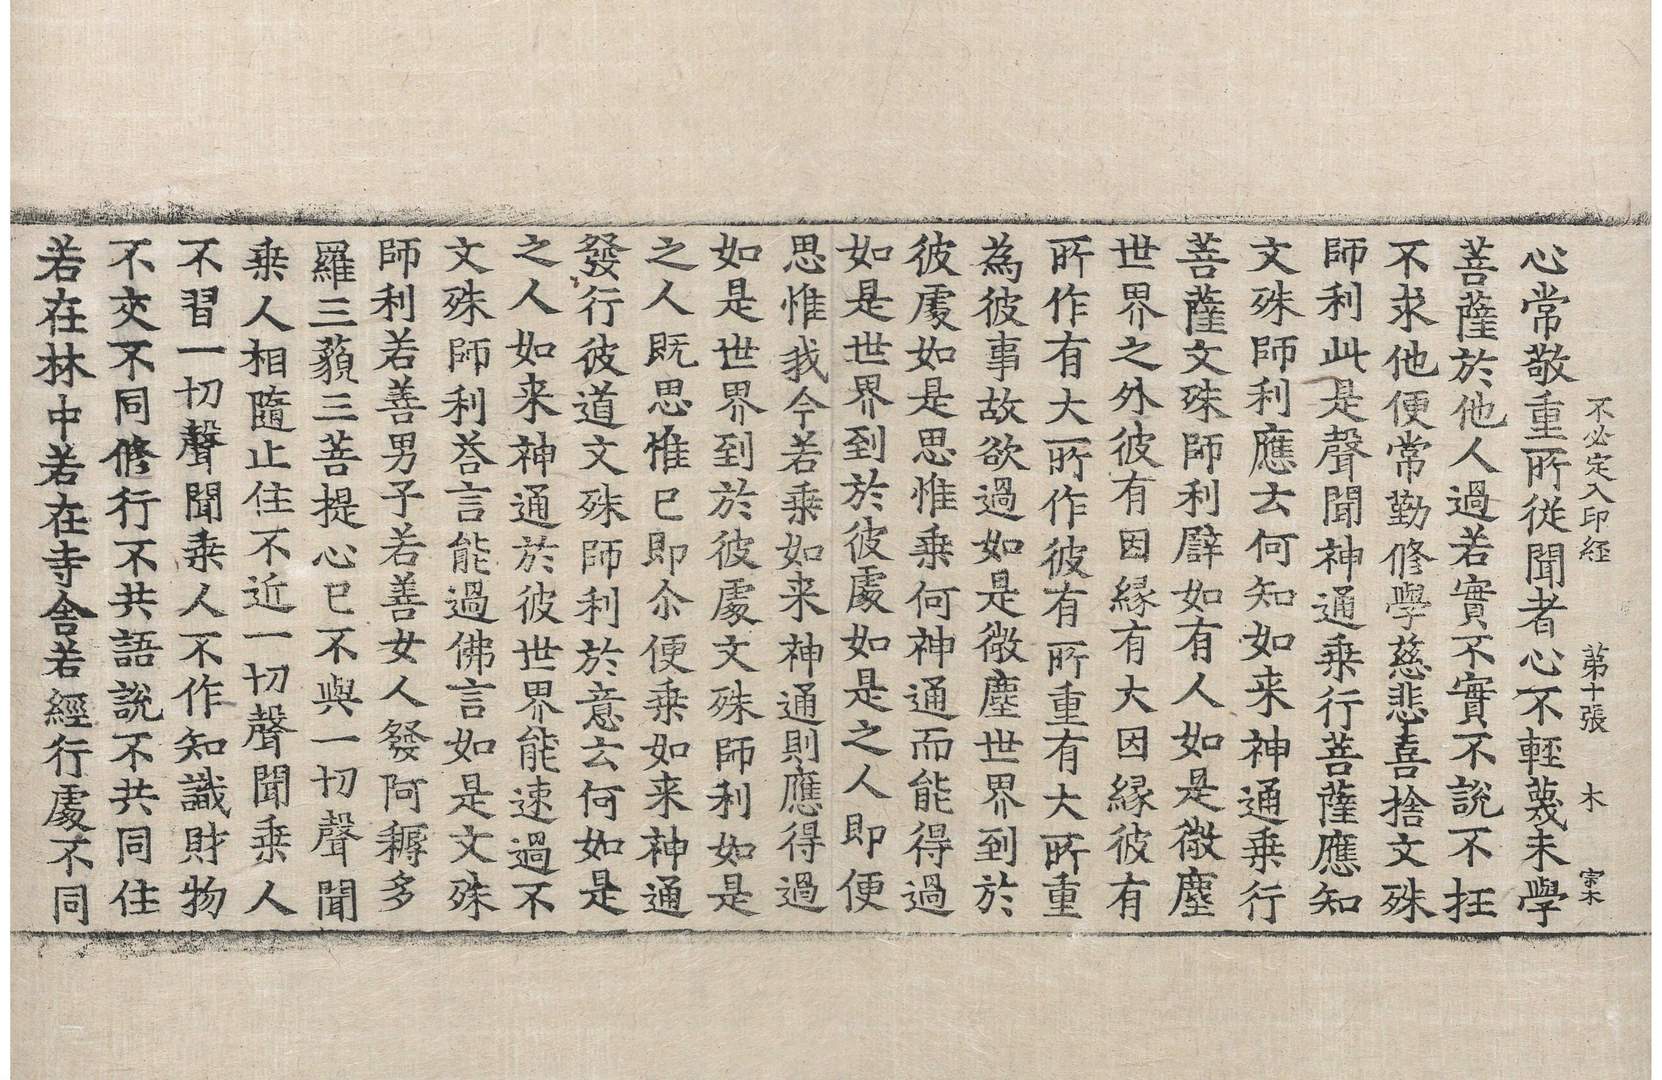 不必定入印經 第十張 木 宋木
心常敬重所從聞者心不輕蔑未學
菩薩於他人過若實不實不說不抂
不求他便常勤修學慈悲喜捨文殊
師利此是聲聞神通乗行菩薩應知
文殊師利應云何知如来神通乗行
菩薩文殊師利譬如有人如是微塵
世界之外彼有因縁有大因縁彼有
所作有大所作彼有所重有大所重
為彼事故欲過如是微塵世界到於
彼處如是思惟乗何神通而能得過
如是世界到於彼處如是之人即便
思惟我今若乗如来神通則應得過
如是世界到於彼處文殊師利如是
之人既思惟已即尒便乗如来神通
發行彼道文殊師利於意云何如是
之人如来神通於彼世界能速過不
文殊師利荅言能過佛言如是文殊
師利若善男子若善女人發阿耨多
羅三藐三菩提心已不與一切聲聞
乗人相隨止住不近一切聲聞乗人
不習一切聲聞乗人不作知識財物
不交不同修行不共語說不共同住
若在林中若在寺舎若經行處不同